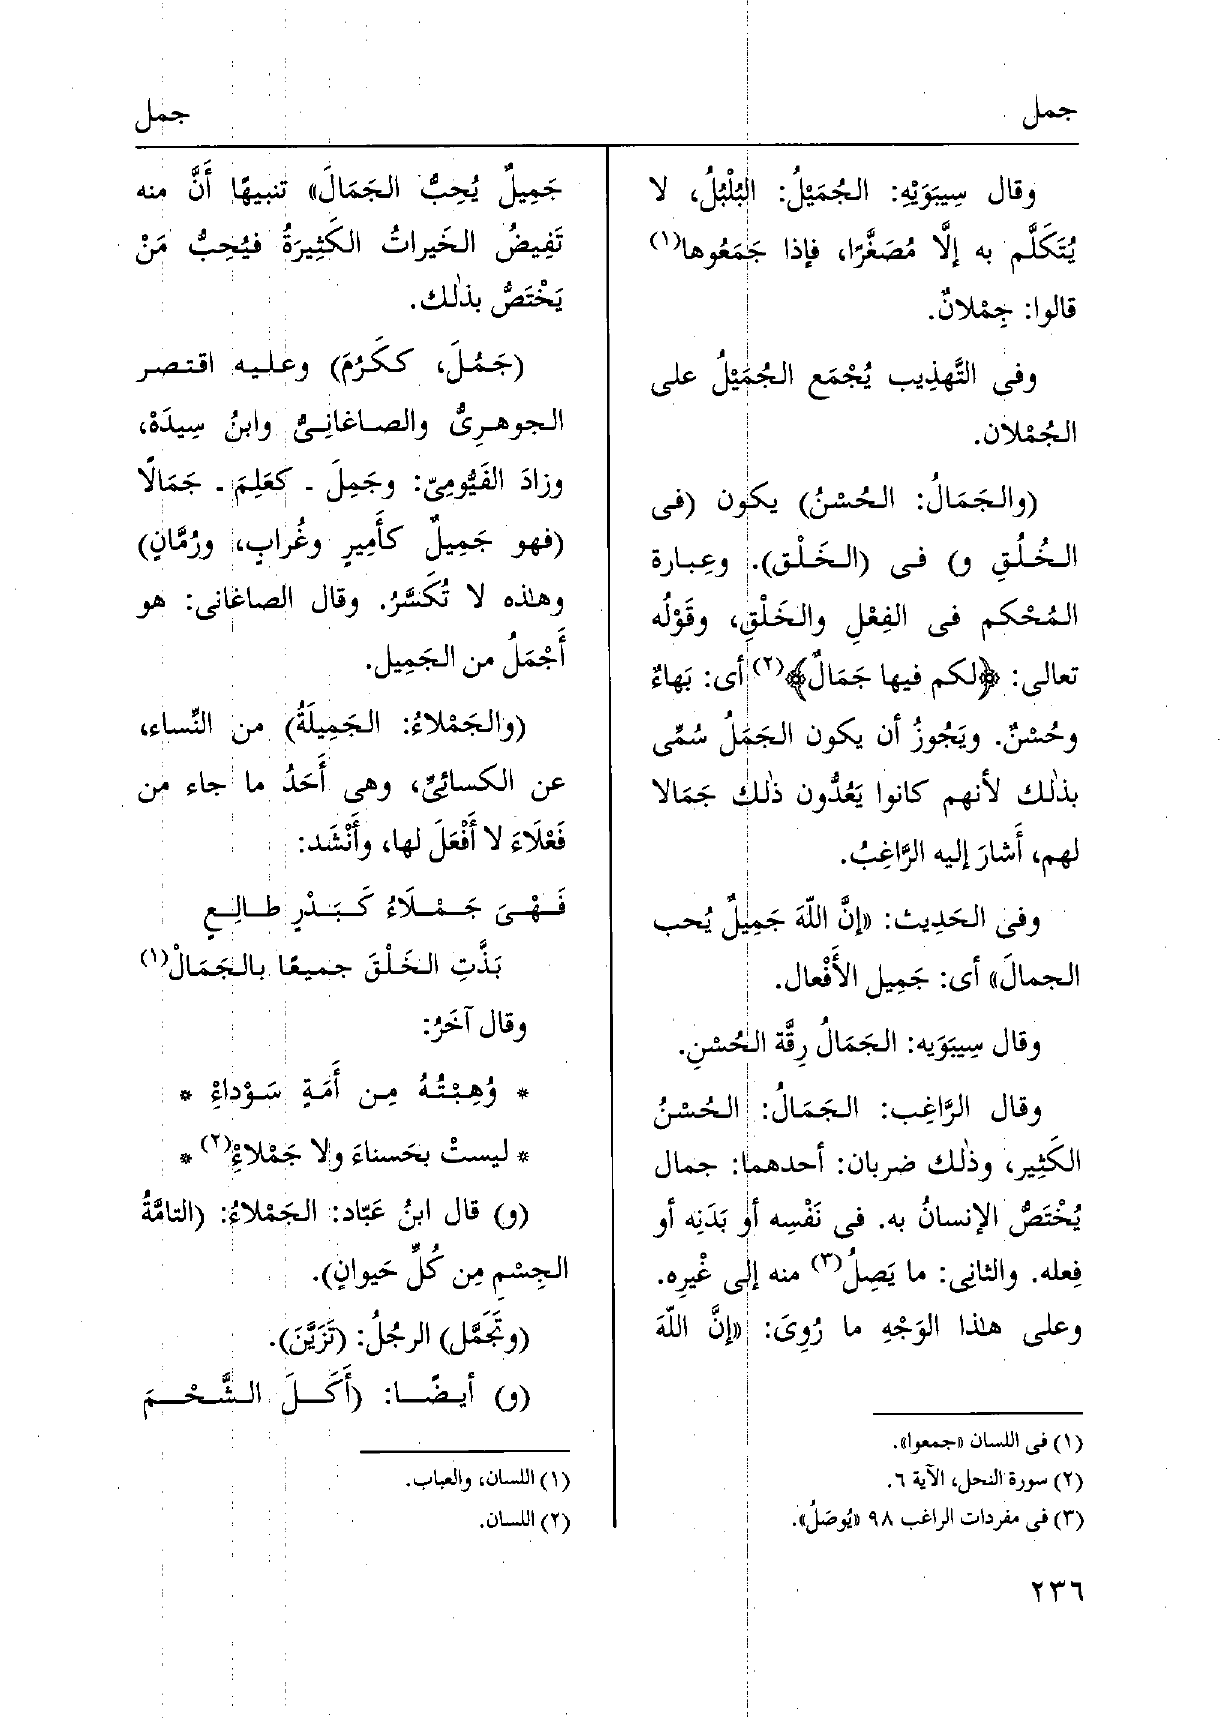 جمل
جمل
وقال سِيبَوَيْهِ: الجُمَيْلُ: البُلْبُلُ، لا
يُتَكَلَّم به إلَّا مُصَغَّرًا، فإذا جَمَعُوها(١)
قالوا: جِمْلانٌ.
وفى التَّهذِيب يُجْمَع الجُمَيْلُ على
الجُمْلان.
(والجَمَالُ: الحُسْنُ) يكون (فى
الخُلُقِ و) فى (الخَلْق). وعِبارة
المُحْكم فى الفِعْلِ والخَلْقِ، وقَوْلُه
تعالى: ﴿لكم فيها جَمَالٌ﴾(٢) أى: بَهاءٌ
وحُسْنٌ. ويَجُوزُ أن يكون الجَمَلُ سُمِّى
بذلٰك لأنهم كانوا يَعُدُّون ذلٰك جَمَالا
لهم، أَشارَ إليه الرَّاغِبُ.
وفى الحَدِيث: «إنَّ اللّٰهَ جَمِيلٌ يُحب
الجمالَ» أى: جَمِيل الأَفْعال.
وقال سِيبَوَيه: الجَمَالُ رِقَّة الحُسْنِ.
وقال الرَّاغِب: الجَمَالُ: الحُسْنُ
الكَثِير، وذلٰك ضربان: أحدهما: جمال
يُخْتَصُّ الإنسانُ به. فى نَفْسِه أو بَدَنِه أو
فِعله. والثانِى: ما يَصِلُ(٣) منه إلى غْيرِه.
وعلى هٰذا الوَجْهِ ما رُوِىَ: «إنَّ اللّٰهَ
(١) فى اللسان «جمعوا».
(٢) سورة النحل، الآية ٦.
(٣) فى مفردات الراغب ٩٨ «يُوصَلُ».
جَمِيلٌ يُحِبُّ الجَمَالَ» تنبيهًا أَنَّ منه
تَفِيضُ الخَيراتُ الكَثِيرَةُ فيُحِبُّ مَنْ
يَخْتَصُّ بذلٰك.
(جَمُلَ، ككَرُمَ) وعليه اقتصر
الجوهرِىُّ والصاغانِىُّ وابنُ سِيدَهْ،
وزادَ الفَيُّومِىّ: وجَمِلَ - كعَلِمَ - جَمَالًا
(فهو جَمِيلٌ كأَمِيرٍ وغُرابٍ، ورُمَّانٍ)
وهٰذه لا تُكَسَّرُ. وقال الصاغانى: هو
أَجْمَلُ من الجَمِيل.
(والجَمْلاءُ: الجَمِيلَةُ) من النِّساء،
عن الكسائىِّ، وهى أَحَدُ ما جاء من
فَعْلَاءَ لا أَفْعَلَ لها، وأَنْشَد:
فَهْىَ جَمْلَاءُ كَبَدْرٍ طالِعٍ
بَذَّتِ الخَلْقَ جميعًا بالجَمَالْ(١)
وقال آخَرُ:
* وُهِبْتُهُ مِن أَمَةٍ سَوْداءْ *
* ليستْ بحَسناءَ ولا جَمْلاءْ(٢) *
(و) قال ابنُ عَبّاد: الجَمْلاءُ: (التامَّةُ
الجِسْمِ مِن كُلِّ حَيوانٍ).
(وتَجَمَّل) الرجُلُ: (تَزَيَّنَ).
(و) أيضًا: (أَكَلَ الشَّحْمَ
(١) اللسان، والعباب.
(٢) اللسان.
٢٣٦